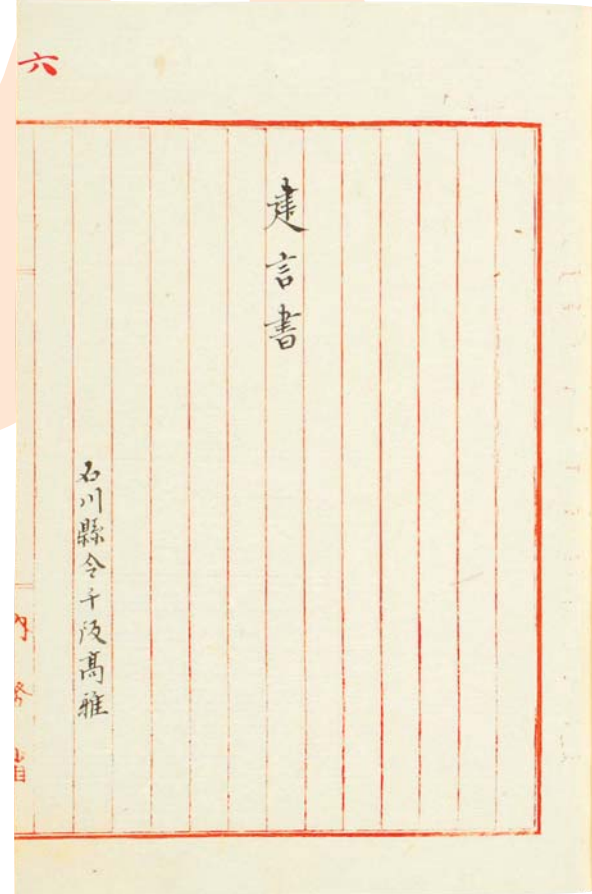 六
建言書
石川縣令千阪高雅
内務省